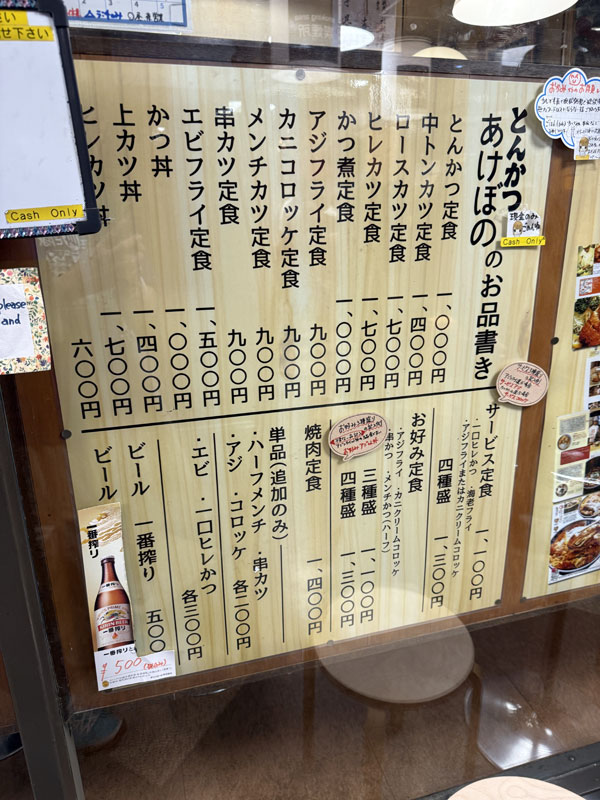 とんかつ
あけぼののお品書き
現金のみ
Cash Only
とんかつ定食 一、〇〇〇円
中トンカツ定食 一、四〇〇円
ロースカツ定食 一、七〇〇円
ヒレカツ定食 一、七〇〇円
かつ煮定食 一、〇〇〇円
アジフライ定食 九〇〇円
カニコロッケ定食 九〇〇円
メンチカツ定食 九〇〇円
串カツ定食 九〇〇円
エビフライ定食 一、五〇〇円
かつ丼 一、〇〇〇円
上カツ丼 一、四〇〇円
ヒレカツ丼 一、七〇〇円
六〇〇円
サービス定食 一、一〇〇円
・一口ヒレかつ ・海老フライ
・アジフライまたはカニクリームコロッケ
四種盛 一、三〇〇円
お好み定食
・アジフライ ・カニクリームコロッケ
・串かつ ・メンチかつ(ハーフ)
三種盛 一、一〇〇円
四種盛 一、三〇〇円
焼肉定食 一、四〇〇円
単品(追加のみ)
・ハーフメンチ ・串カツ
・アジ ・コロッケ 各二〇〇円
・エビ ・一口ヒレかつ 各三〇〇円
ビール 一番搾り 五〇〇
ビール
一番搾り
KIRIN BEER
一番搾り
¥500(税込み)
Cash Only
please
and
せ下さい